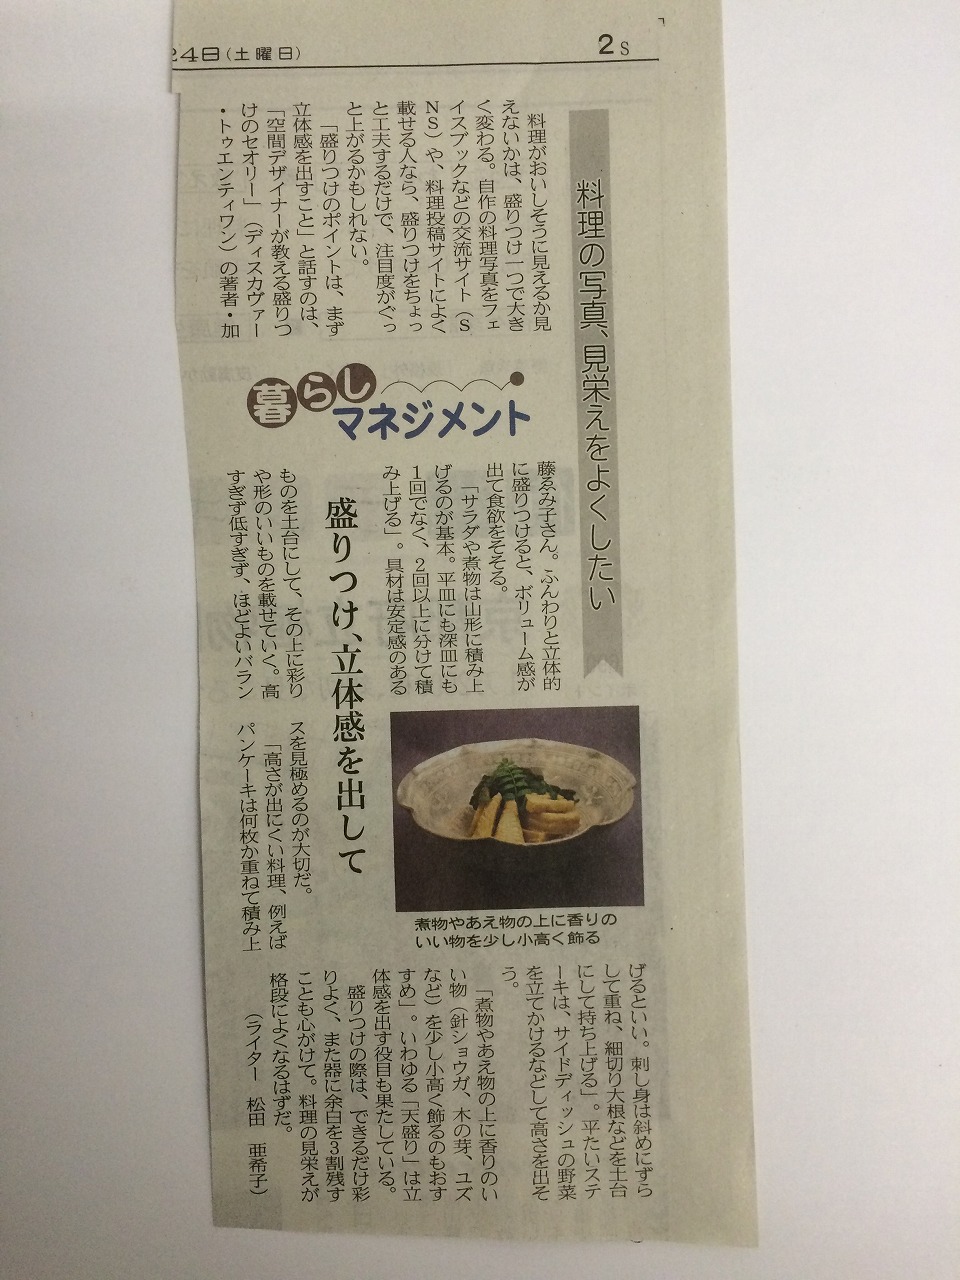 24日(土曜日)
2S
料理の写真、見栄えをよくしたい
料理がおいしそうに見えるか見
えないかは、盛りつけ一つで大き
く変わる。自作の料理写真をフェ
イスブックなどの交流サイト(S
NS)や、料理投稿サイトによく
載せる人なら、盛りつけをちょっ
と工夫するだけで、注目度がぐっ
と上がるかもしれない。
「盛りつけのポイントは、まず
立体感を出すこと」と話すのは、
「空間デザイナーが教える盛りつ
けのセオリー」(ディスカヴァー
・トゥエンティワン)の著者・加
暮らし
マネジメント
藤ゑみ子さん。ふんわりと立体的
に盛りつけると、ボリューム感が
出て食欲をそそる。
「サラダや煮物は山形に積み上
げるのが基本。平皿にも深皿にも
1回でなく、2回以上に分けて積
み上げる」。具材は安定感のある
盛りつけ、立体感を出して
ものを土台にして、その上に彩り
や形のいいものを載せていく。高
すぎず低すぎず、ほどよいバラン
スを見極めるのが大切だ。
「高さが出にくい料理、例えば
パンケーキは何枚か重ねて積み上
煮物やあえ物の上に香りの
いい物を少し小高く飾る
げるといい。刺し身は斜めにずら
して重ね、細切り大根などを土台
にして持ち上げる」。平たいステ
ーキは、サイドディッシュの野菜
を立てかけるなどして高さを出そ
う。
「煮物やあえ物の上に香りのい
い物(針ショウガ、木の芽、ユズ
など)を少し小高く飾るのもおす
すめ」。いわゆる「天盛り」は立
体感を出す役目も果たしている。
盛りつけの際は、できるだけ彩
りよく、また器に余白を3割残す
ことも心がけて。料理の見栄えが
格段によくなるはずだ。
(ライター 松田 亜希子)